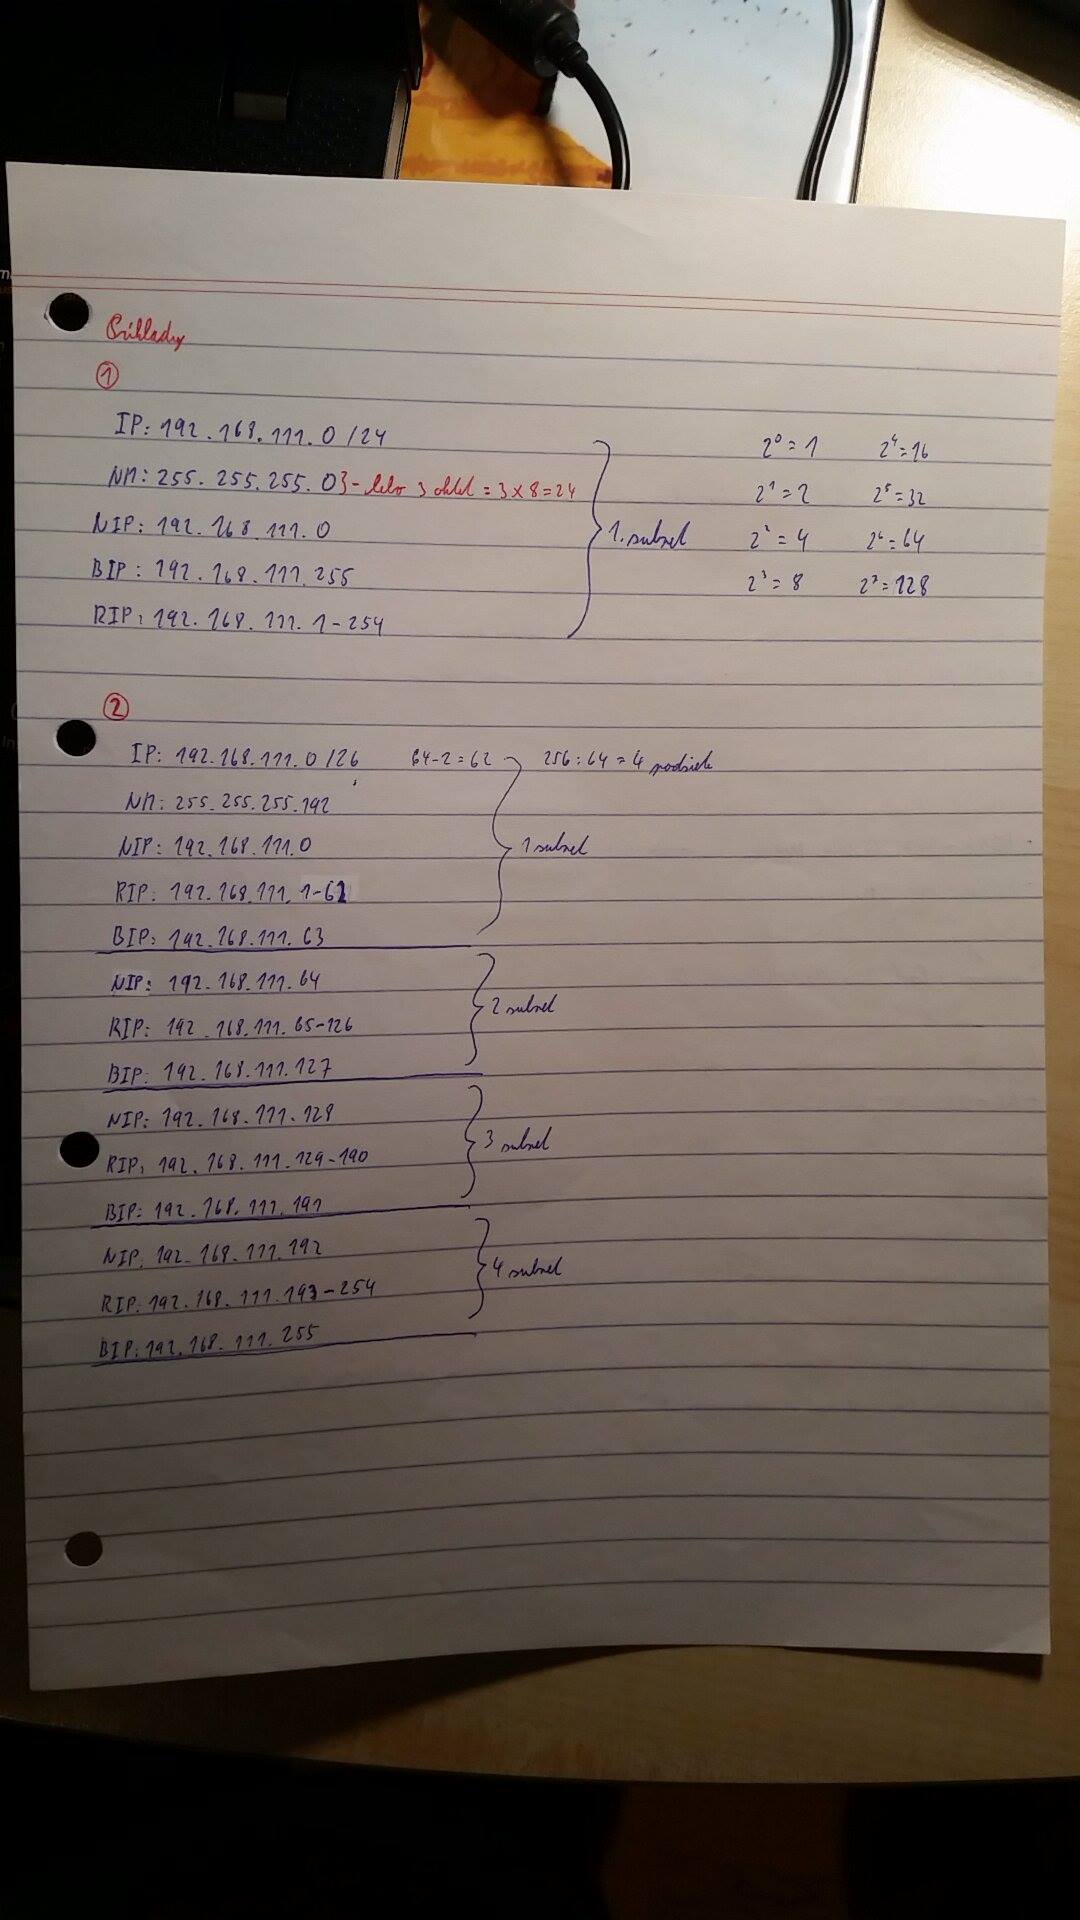 Príklady
1
IP: 192.168.111.0 /24
NM: 255.255.255.0 3 - 3 oktet = 3 x 8 = 24
NIP: 192.168.111.0
BIP: 192.168.111.255
RIP: 192.168.111.1-254
1. subnet
2⁰ = 1 2⁴ = 16
2¹ = 2 2⁵ = 32
2² = 4 2⁶ = 64
2³ = 8 2⁷ = 128
2
IP: 192.168.111.0 /26 64-2 = 62 256:64 = 4 podsiete
NM: 255.255.255.192
NIP: 192.168.111.0
RIP: 192.168.111.1-62
BIP: 192.168.111.63
1 subnet
NIP: 192.168.111.64
RIP: 192.168.111.65-126
BIP: 192.168.111.127
2 subnet
NIP: 192.168.111.128
RIP: 192.168.111.129-190
BIP: 192.168.111.191
3 subnet
NIP: 192.168.111.192
RIP: 192.168.111.193-254
BIP: 192.168.111.255
4 subnet